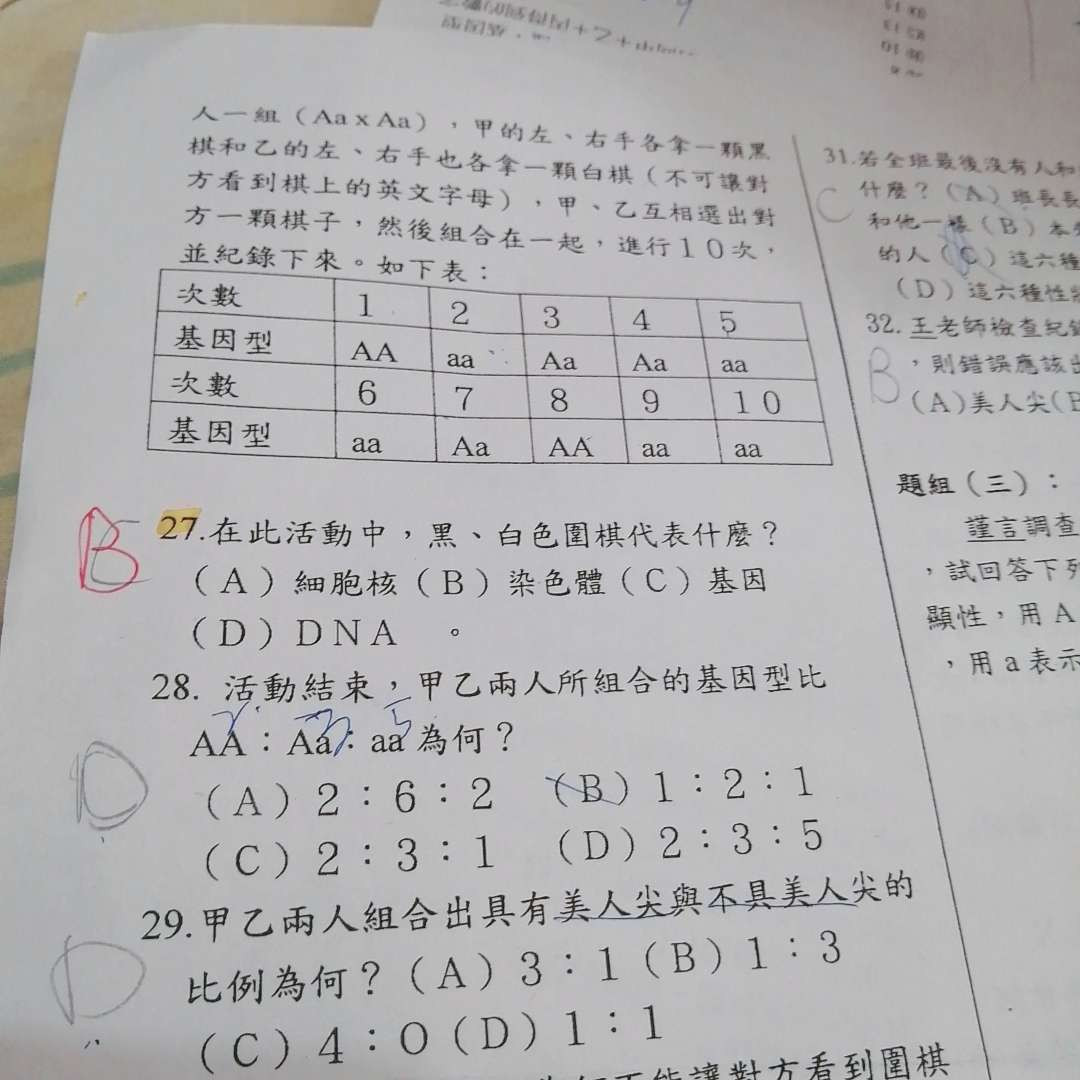 人一組（Aa x Aa），甲的左、右手各拿一顆黑
棋和乙的左、右手也各拿一顆白棋（不可讓對
方看到棋上的英文字母），甲、乙互相選出對
方一顆棋子，然後組合在一起，進行１０次，
並紀錄下來。如下表：
次數 1 2 3 4 5
基因型 AA aa Aa Aa aa
次數 6 7 8 9 10
基因型 aa Aa AA aa aa
B 27.在此活動中，黑、白色圍棋代表什麼？
（A）細胞核（B）染色體（C）基因
（D）DNA 。
28. 活動結束，甲乙兩人所組合的基因型比
2 3 5
D AA：Aa：aa 為何？
（A）2：6：2 （B）1：2：1
（C）2：3：1 （D）2：3：5
29.甲乙兩人組合出具有美人尖與不具美人尖的
D 比例為何？（A）3：1（B）1：3
（C）4：0（D）1：1
讓對方看到圍棋
31.若全班最後沒有人和
C 什麼？（A）班長長
和他一樣（B）本
的人（C）這六種
（D）這六種性
32. 王老師檢查紀
B ，則錯誤應該出
（A）美人尖（B
題組（三）：
謹言調查
，試回答下列
顯性，用 A
，用 a 表示